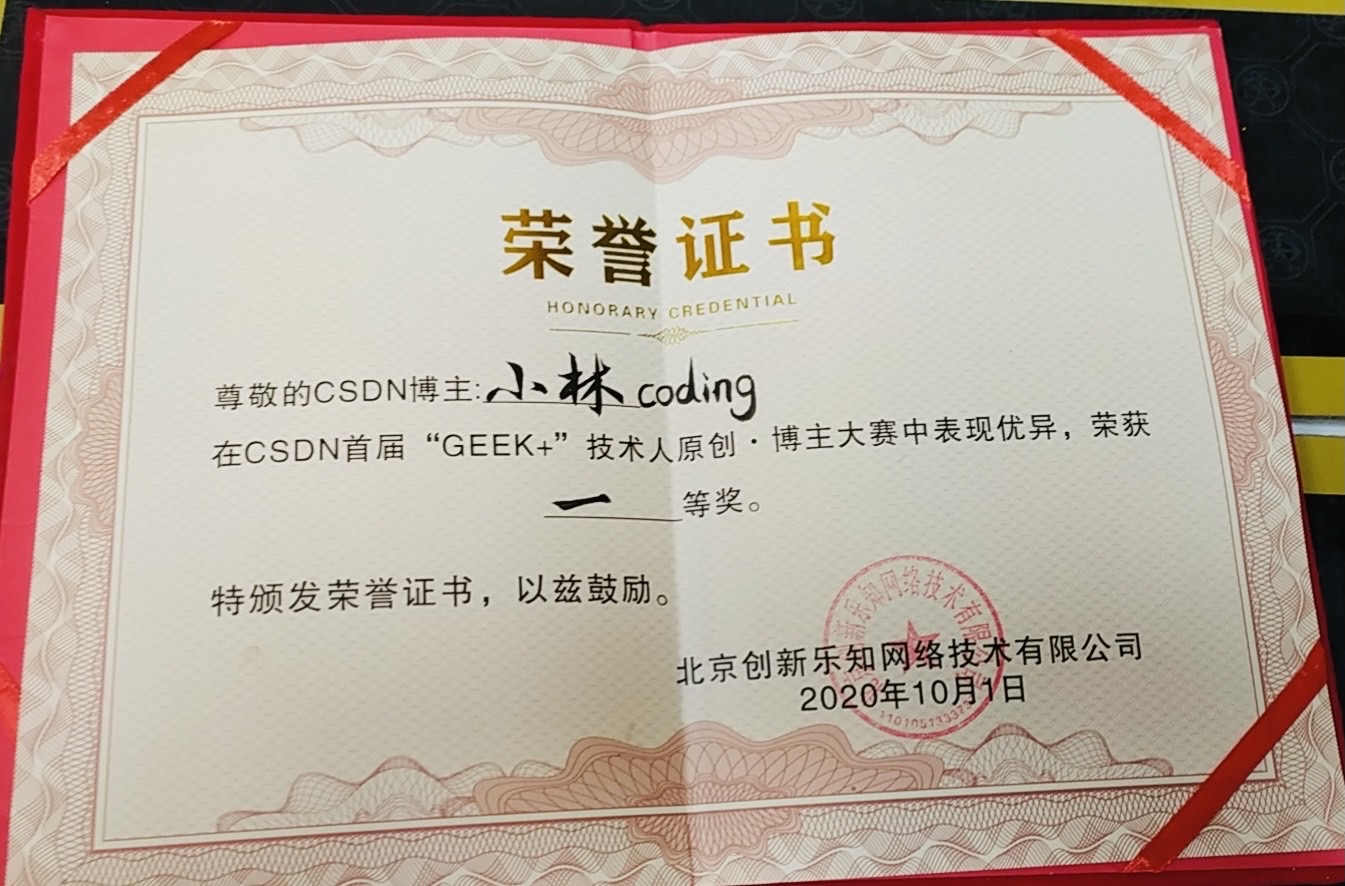 荣誉证书
HONORARY CREDENTIAL
尊敬的CSDN博主:小林coding
在CSDN首届“GEEK+”技术人原创·博主大赛中表现优异，荣获
一等奖。
特颁发荣誉证书，以兹鼓励。
北京创新乐知网络技术有限公司
2020年10月1日
新乐知网络技术有限